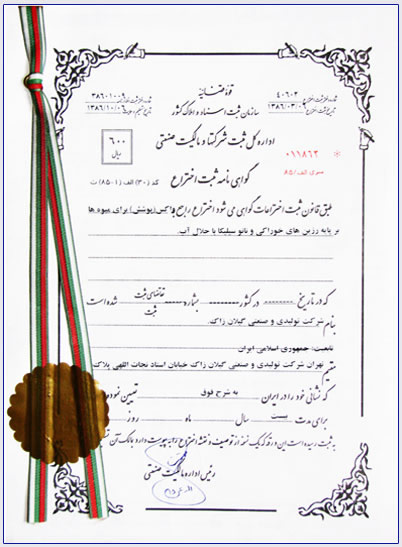 قوه قضائیه
سازمان ثبت اسناد و املاک کشور
۴۰۶۰۲
۱۳۸۶/۱۰/۰۶
اداره کل ثبت شرکتها و مالکیت صنعتی
۶۰۰
ریال
۰۱۱۸۶۲
سری الف/۸۵
گواهی نامه ثبت اختراع
کد (۳۰) الف (۱-۸۵) ث
طبق قانون ثبت اختراعات گواهی می شود اختراع راجع به واکس(پوشش) برای میوه ها
بر پایه رزین های خوراکی و نانو سیلیکا با حلال آب.
که در تاریخ -------- در کشور -------- بشماره ----- تقاضای ثبت شده است
ثبت
بنام شرکت تولیدی و صنعتی گیلان زاک.
تابعیت: جمهوری اسلامی ایران
مقیم تهران شرکت تولیدی و صنعتی گیلان زاک خیابان استاد نجات اللهی پلاک
که نشانی خود را در ایران به شرح فوق تعیین نموده
برای مدت بیست سال ماه روز
به ثبت رسیده است این ورقه که یک نسخه از توصیف و نقشه اختراع را به پیوست دارد با بانک آن
رئیس اداره مالکیت صنعتی